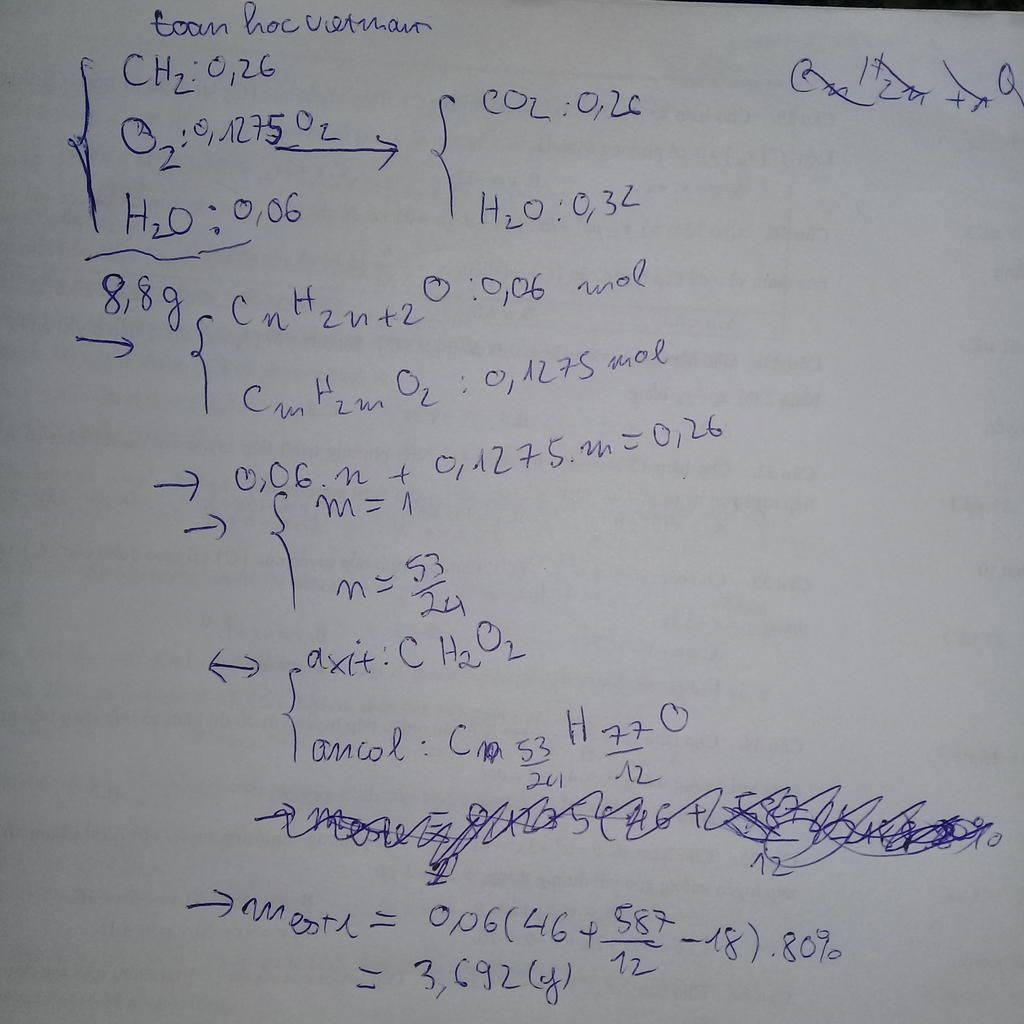 toan hoc vietnam
CH2: 0,26
O2: 0,1275 O2 → CO2: 0,26
H2O: 0,06 H2O: 0,32
8,8g
→ CnH2n+2O: 0,06 mol
CmH2mO2: 0,1275 mol
→ 0,06.n + 0,1275.m = 0,26
→ m = 1
n = 53/24
↔ axit: CH2O2
ancol: C53/24H77/12O
→ meste = 0,06(46 + 587/12 - 18).80%
= 3,692(g)